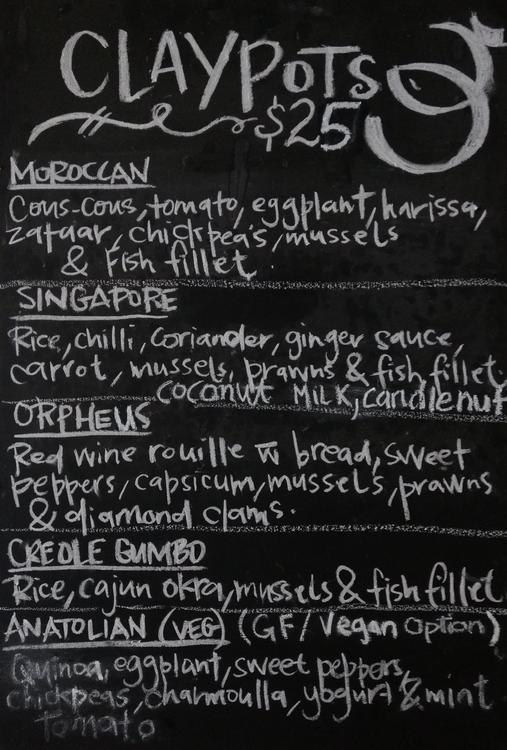 CLAYPOTS
$25
MOROCCAN
Cous-Cous, tomato, eggplant, harissa,
zataar, chickpeas, mussels
& Fish fillet.
SINGAPORE
Rice, chilli, Coriander, ginger sauce,
carrot, mussels, prawns & fish fillet.
coconut MILK, candlenut
ORPHEUS
Red wine rouille w bread, sweet
peppers, capsicum, mussels, prawns
& diamond clams.
CREOLE GUMBO
Rice, cajun okra, mussels & fish fillet
ANATOLIAN (VEG) (GF/Vegan Option)
Quinoa, eggplant, sweet peppers,
chickpeas, charmoulla, yogurt & mint
Tomato